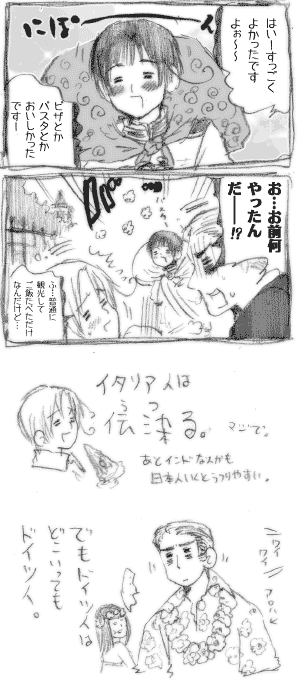 にほーん
はいーすっごく
よかったです
よぉ〜〜
ピザとか
パスタとか
おいしかった
ですー
お…お前何
やったん
だ――!?
ふ…普通に
観光して
ご飯たべただけ
なんだけど…
イタリア人は
うつ
伝染る。
マジで。
あとインドな人かも
日本人いくとうつりやすい。
ワイ
ワイ
アロハ
でもドイツ人は
どこいっても
ドイツ人。